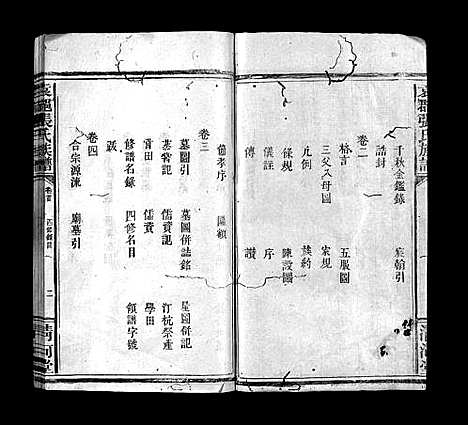 千秋金鑑錄 宸翰引
誥封
卷二
格言 五服圖
三父八母圖 家規
凡例 族約
條規 陳設圖
儀註 序
傳 讚
備孝序 匾額
卷三
墓圖引 墓圖併誌銘 星圖併記
墓嘗記 儒資記 汀杭祭產
膏田 儒資 學田
修譜名錄 四修名目 領譜字號
跋
卷四
合宗源流 廟墓引
張氏族譜
卷首
二
清河堂